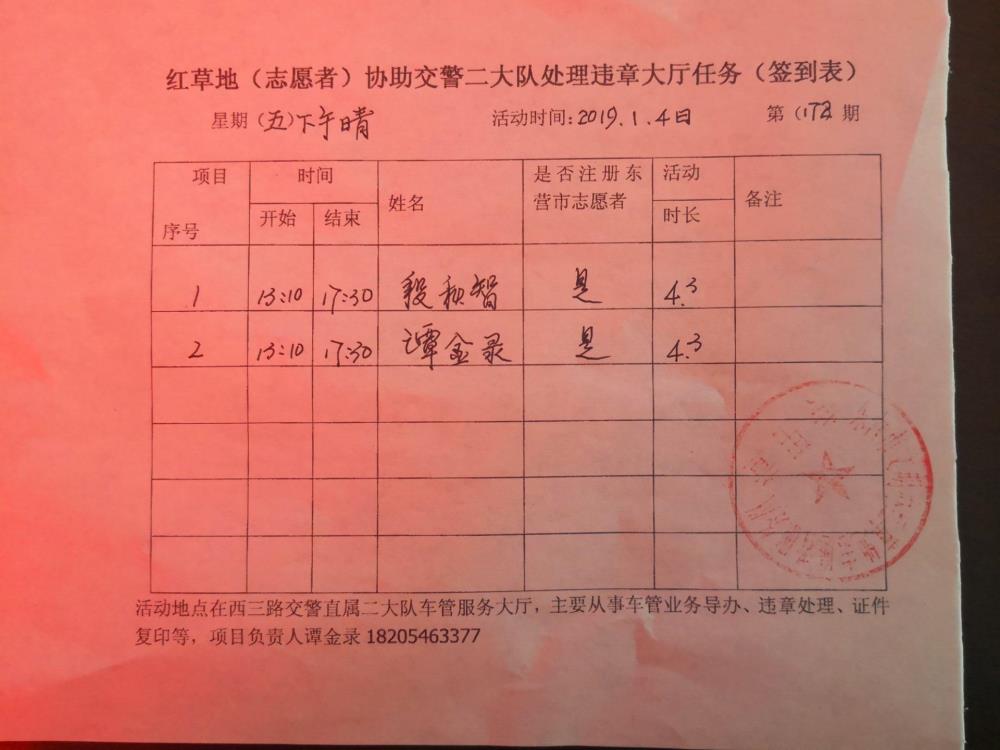 红草地（志愿者）协助交警二大队处理违章大厅任务（签到表）
星期（五）下午晴 活动时间：2019.1.4日 第（173期
项目 时间 姓名 是否注册东营市志愿者 活动时长 备注
序号 开始 结束
1 13:10 17:30 段秋智 是 4.3
2 13:10 17:30 谭金录 是 4.3
活动地点在西三路交警直属二大队车管服务大厅，主要从事车管业务导办、违章处理、证件
复印等，项目负责人谭金录 18205463377